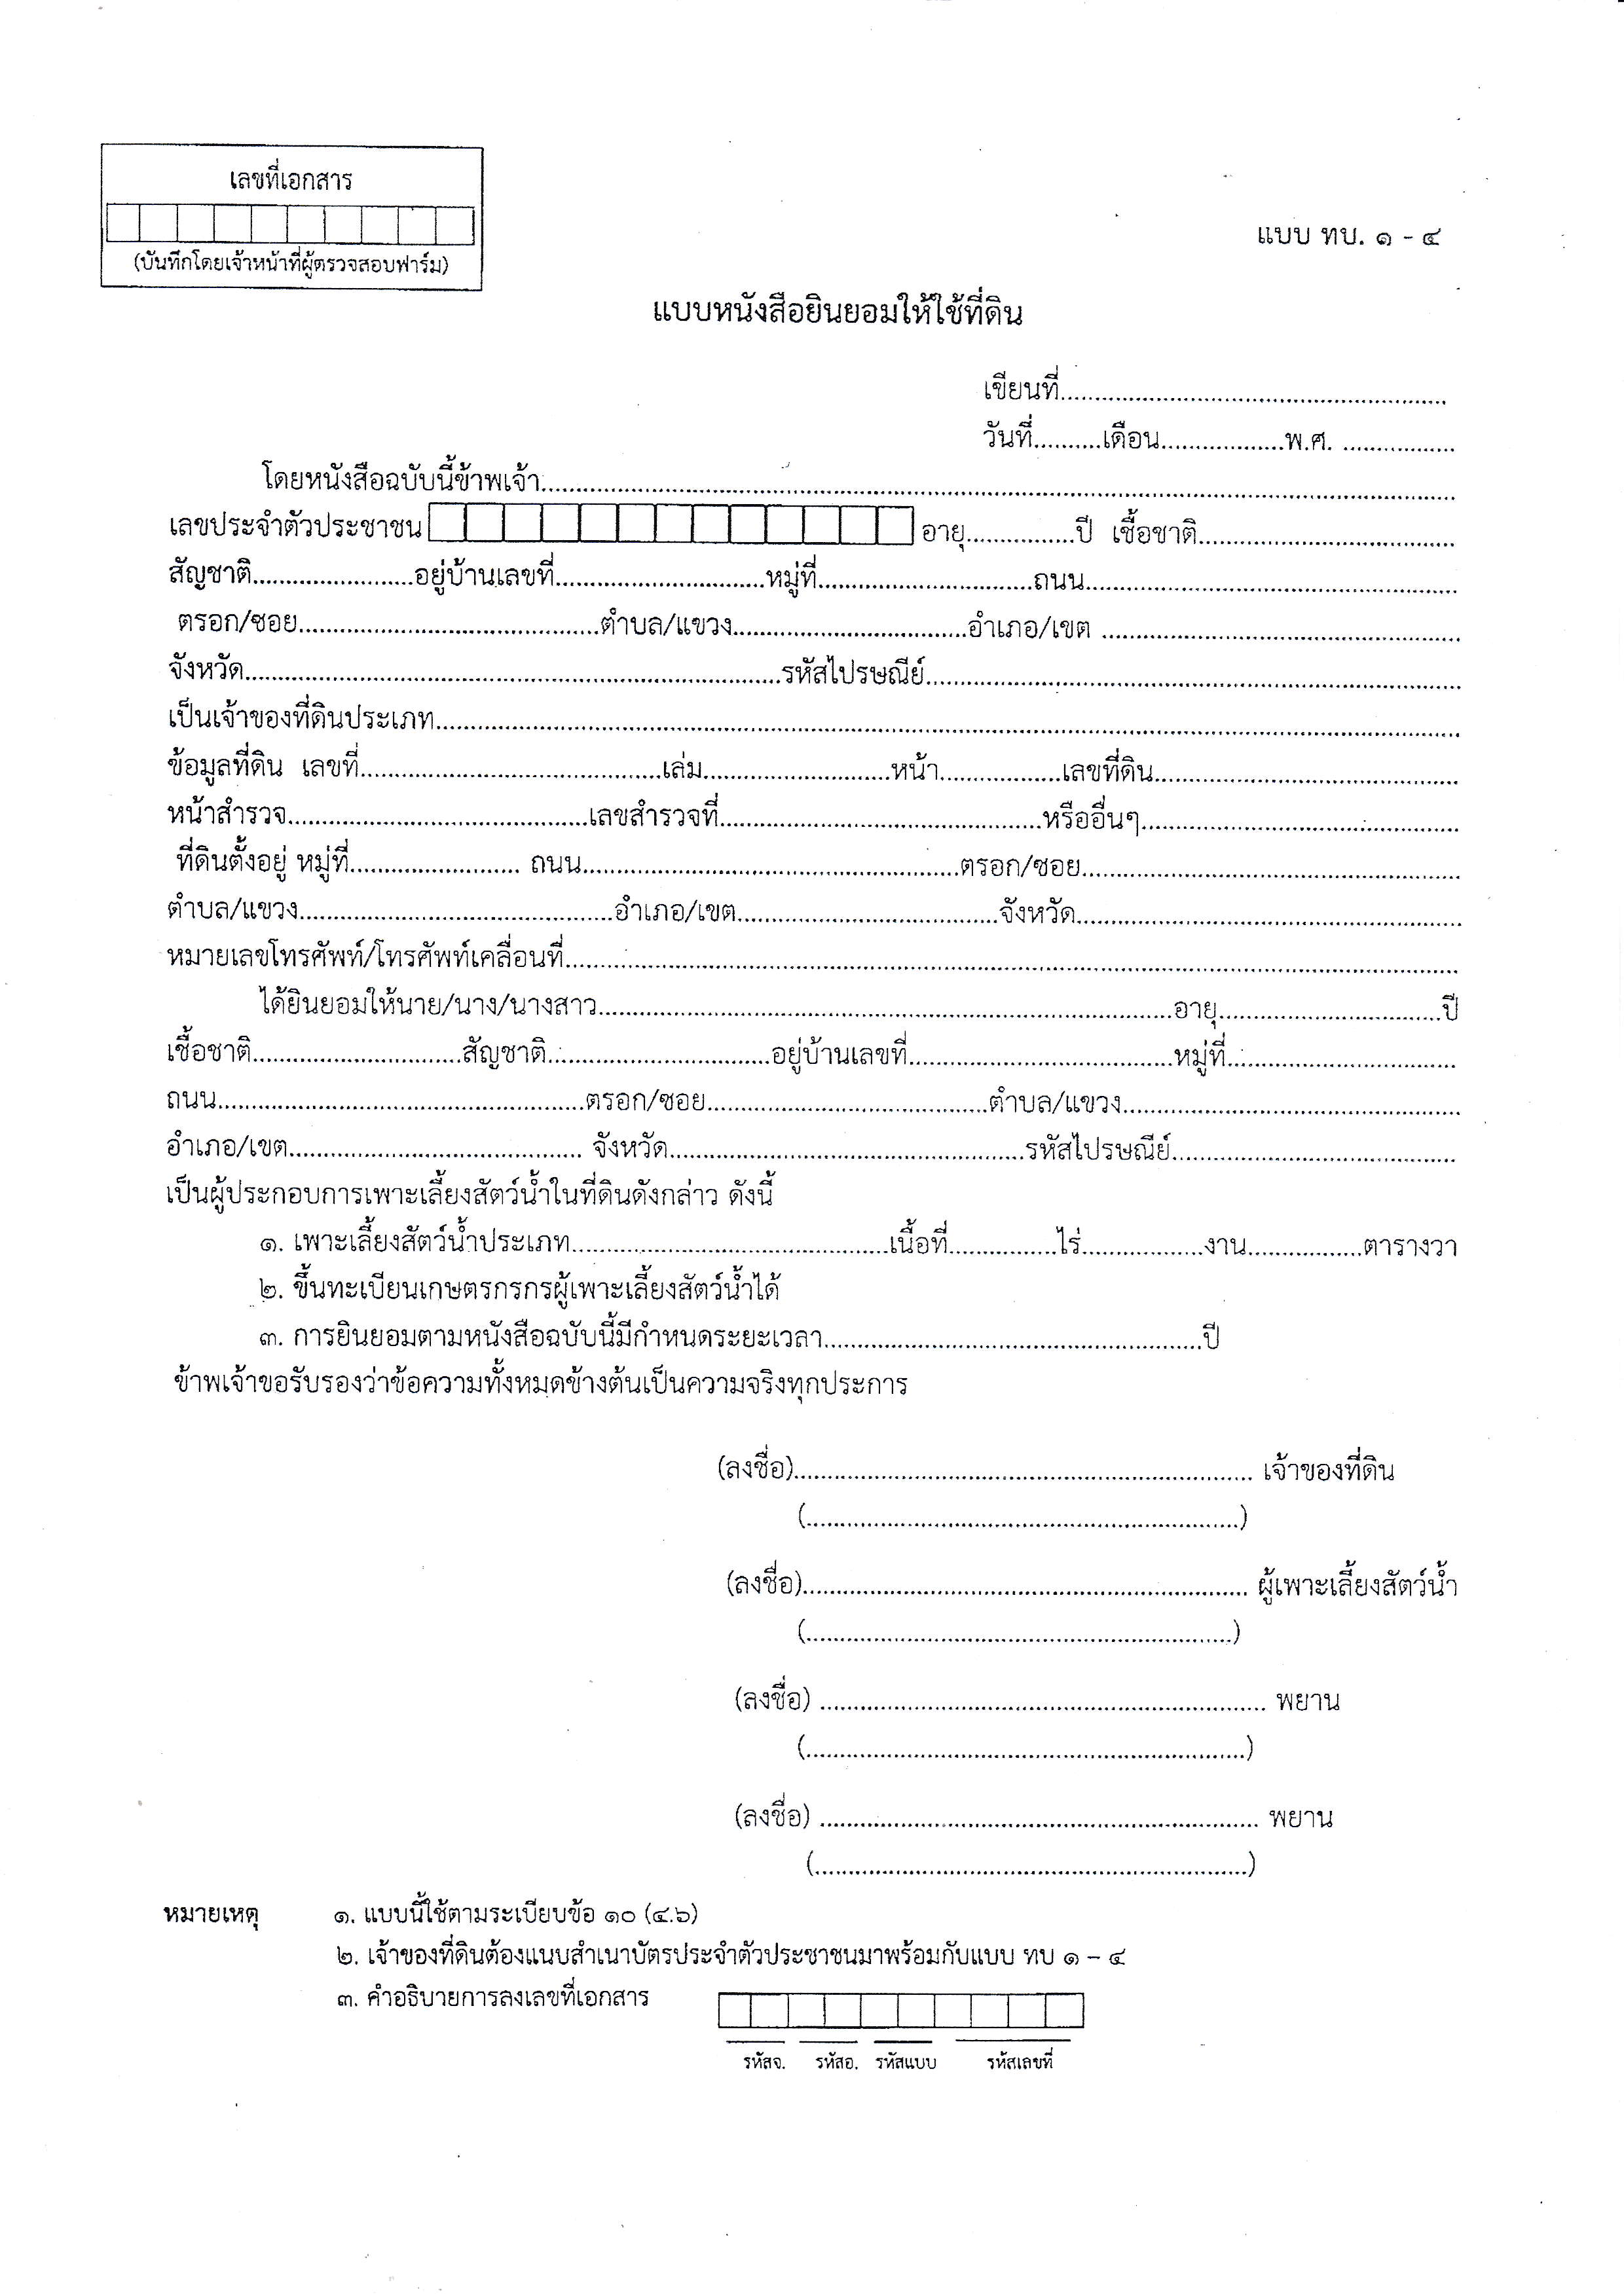 เลขที่เอกสาร
(บันทึกโดยเจ้าหน้าที่ผู้ตรวจสอบฟาร์ม)
แบบ ทบ. ๑ - ๔
แบบหนังสือยินยอมให้ใช้ที่ดิน
เขียนที่..........................................................
วันที่..........เดือน..................พ.ศ. .................
โดยหนังสือฉบับนี้ข้าพเจ้า..........................................................
เลขประจำตัวประชาชน อายุ................ปี เชื้อชาติ......................................
สัญชาติ........................อยู่บ้านเลขที่................................หมู่ที่................................ถนน..........................................................
ตรอก/ซอย..............................................ตำบล/แขวง...................................อำเภอ/เขต ......................................................
จังหวัด..........................................................รหัสไปรษณีย์..........................................................
เป็นเจ้าของที่ดินประเภท..........................................................
ข้อมูลที่ดิน เลขที่..............................................เล่ม............................หน้า..................เลขที่ดิน..............................................
หน้าสำรวจ..............................................เลขสำรวจที่................................................หรืออื่นๆ................................................
ที่ดินตั้งอยู่ หมู่ที่.......................... ถนน..........................................................ตรอก/ซอย..........................................................
ตำบล/แขวง................................................อำเภอ/เขต........................................จังหวัด..........................................................
หมายเลขโทรศัพท์/โทรศัพท์เคลื่อนที่..........................................................
ได้ยินยอมให้นาย/นาง/นางสาว..........................................................อายุ..................................ปี
เชื้อชาติ................................สัญชาติ..................................อยู่บ้านเลขที่........................................หมู่ที่...................................
ถนน........................................................ตรอก/ซอย...........................................ตำบล/แขวง....................................................
อำเภอ/เขต............................................. จังหวัด......................................................รหัสไปรษณีย์...........................................
เป็นผู้ประกอบการเพาะเลี้ยงสัตว์น้ำในที่ดินดังกล่าว ดังนี้
๑. เพาะเลี้ยงสัตว์น้ำประเภท................................................เนื้อที่................ไร่..................งาน.................ตารางวา
๒. ขึ้นทะเบียนเกษตรกรกรผู้เพาะเลี้ยงสัตว์น้ำได้
๓. การยินยอมตามหนังสือฉบับนี้มีกำหนดระยะเวลา..........................................................ปี
ข้าพเจ้าขอรับรองว่าข้อความทั้งหมดข้างต้นเป็นความจริงทุกประการ
(ลงชื่อ).......................................................... เจ้าของที่ดิน
(..........................................................)
(ลงชื่อ).......................................................... ผู้เพาะเลี้ยงสัตว์น้ำ
(..........................................................)
(ลงชื่อ) .......................................................... พยาน
(..........................................................)
(ลงชื่อ) .......................................................... พยาน
(..........................................................)
หมายเหตุ ๑. แบบนี้ใช้ตามระเบียบข้อ ๑๐ (๔.๖)
๒. เจ้าของที่ดินต้องแนบสำเนาบัตรประจำตัวประชาชนมาพร้อมกับแบบ ทบ ๑ – ๔
๓. คำอธิบายการลงเลขที่เอกสาร
รหัสจ. รหัสอ. รหัสแบบ รหัสเลขที่